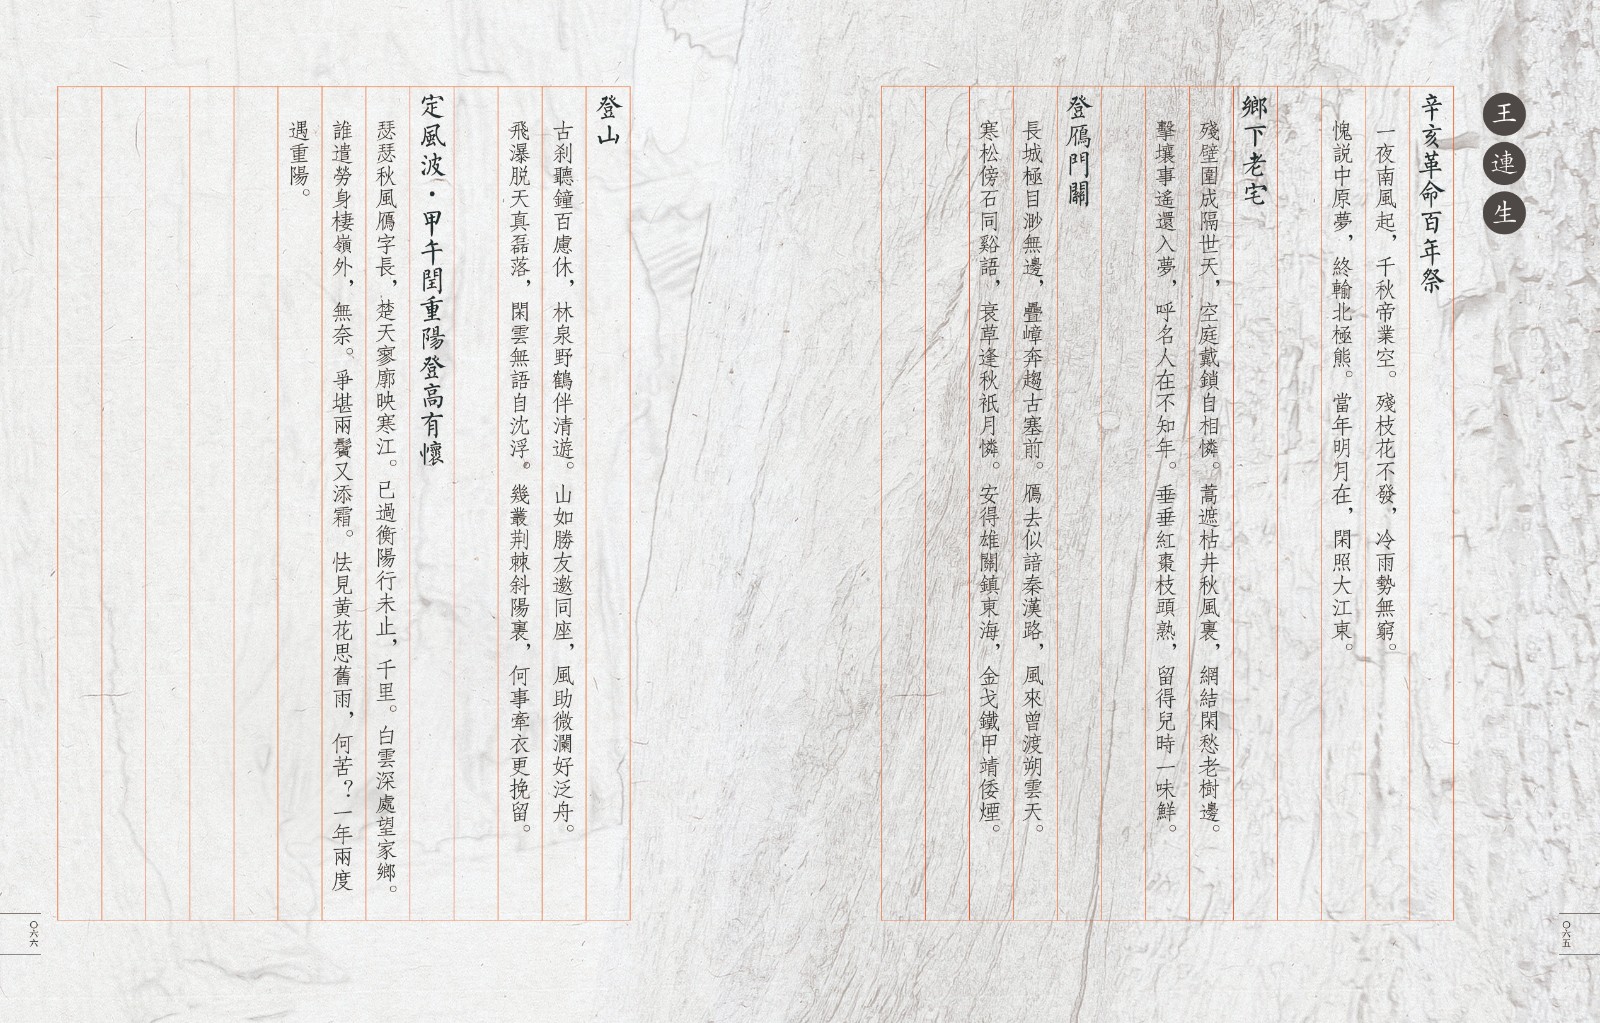 王連生
辛亥革命百年祭
一夜南風起，千秋帝業空。殘枝花不發，冷雨勢無窮。
愧説中原夢，終輸北極熊。當年明月在，閑照大江東。
鄉下老宅
殘壁圍成隔世天，空庭戴鎖自相憐。蒿遮枯井秋風裏，網結閑愁老樹邊。
擊壤事遙還入夢，呼名人在不知年。垂垂紅棗枝頭熟，留得兒時一味鮮。
登鴈門關
長城極目渺無邊，疊嶂奔趨古塞前。鴈去似諳秦漢路，風來曾渡朔雲天。
寒松傍石同谿語，衰草逢秋衹月憐。安得雄關鎮東海，金戈鐵甲靖倭煙。
〇六五
登山
古刹聽鐘百慮休，林泉野鶴伴清遊。山如勝友邀同座，風助微瀾好泛舟。
飛瀑脱天真磊落，閑雲無語自沈浮。幾叢荆棘斜陽裏，何事牽衣更挽留。
定風波·甲午閏重陽登高有懷
瑟瑟秋風鴈字長，楚天寥廓映寒江。已過衡陽行未止，千里。白雲深處望家鄉。
誰遣勞身棲嶺外，無奈。爭堪兩鬢又添霜。怯見黃花思舊雨，何苦？一年兩度
遇重陽。
〇六六